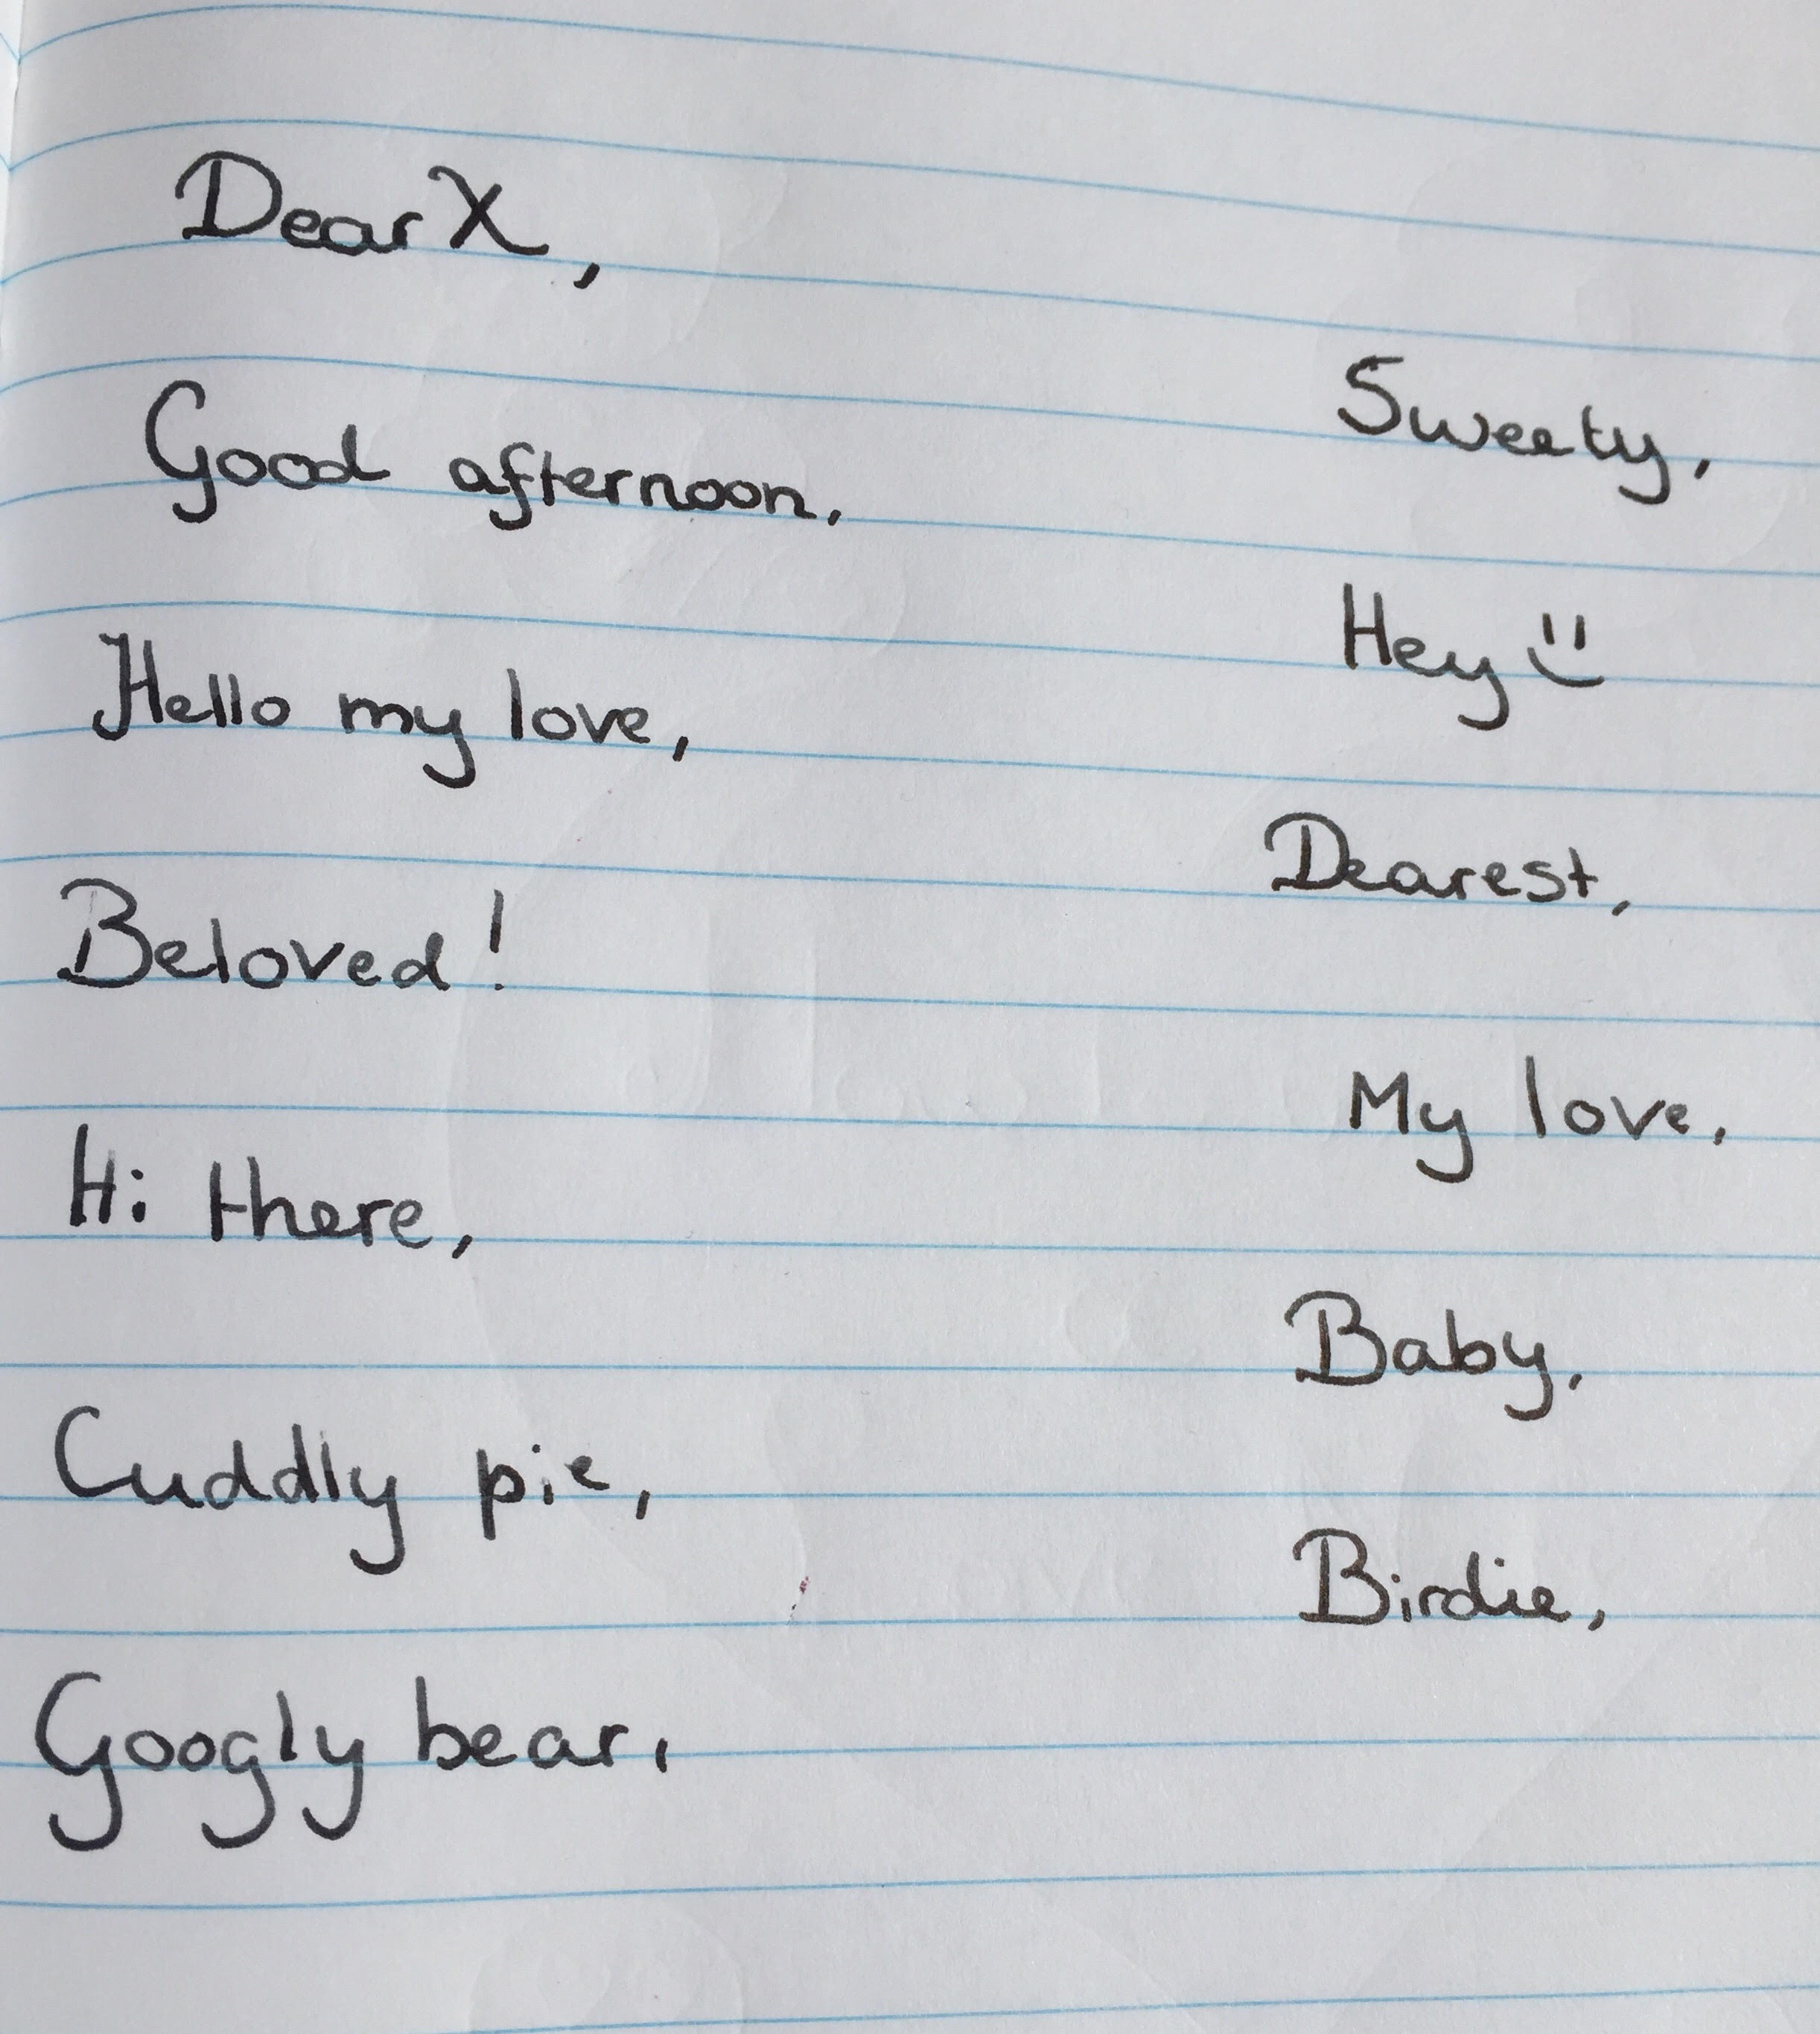 Dear X,
Good afternoon,
Hello my love,
Beloved!
Hi there,
Cuddly pie,
Googly bear,
Sweety,
Hey :)
Dearest,
My love,
Baby,
Birdie,